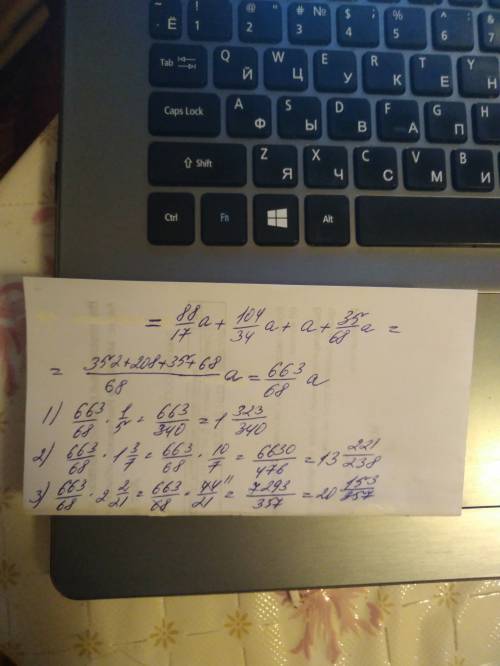 ~ ` Ё
! 1
@ " 2
# № 3
$ ; 4
% 5
^ : 6
& 7
Tab Q Й W Ц E У R К T Е Y Н
Caps Lock A Ф S Ы D В F А G П H
Shift Z Я X Ч C С V М B И
Ctrl Fn Alt
= 88/17 a + 104/34 a + a + 35/68 a =
= (352+208+35+68)/68 a = 663/68 a
1) 663/68 · 1/5 = 663/340 = 1 323/340
2) 663/68 · 1 3/7 = 663/68 · 10/7 = 6630/476 = 13 221/238
3) 663/68 · 2 2/21 = 663/68 · 44 11/21 = 7293/357 = 20 153/357